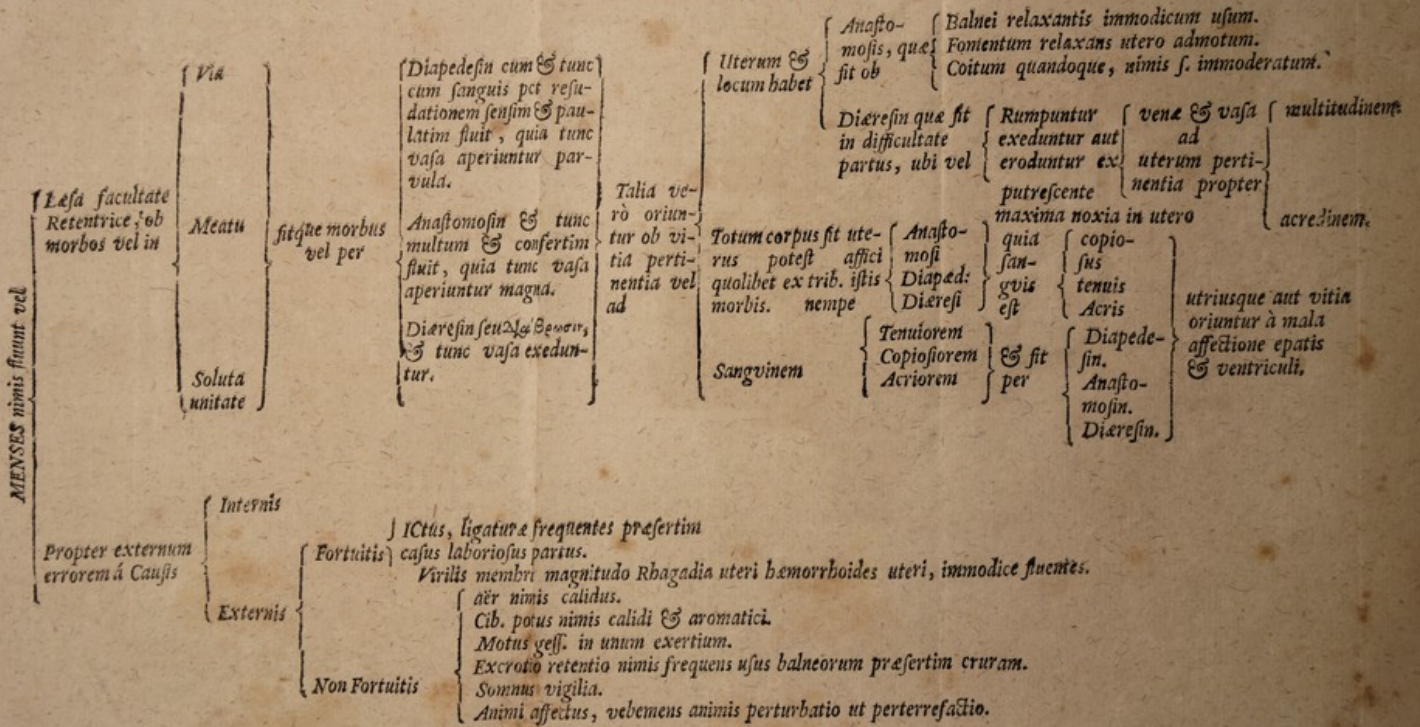 MENSES nimis fluunt vel
Læsa facultate
Retentrice, ob
morbos vel in
Via
Meatu
Soluta
unitate
fitque morbus
vel per
Diapedesin cum & tunc
cum sanguis pct resu-
dationem sensim & pau-
latim fluit, quia tunc
vasa aperiuntur par-
vula.
Anastomosin & tunc
multum & confertim
fluit, quia tunc vasa
aperiuntur magna.
Diæresin seu
& tunc vasa exedun-
tur.
Talia ve-
rò oriun-
tur ob vi-
tia perti-
nentia vel
ad
Uterum &
locum habet
Anasto-
mosis, quæ
fit ob
Balnei relaxantis immodicum usum.
Fomentum relaxans utero admotum.
Coitum quandoque, nimis s. immoderatum.
Diæresin quæ fit
in difficultate
partus, ubi vel
Rumpuntur
exeduntur aut
eroduntur ex
putrescente
maxima noxia in utero
venæ & vasa
ad
uterum perti-
nentia propter
multitudinem.
acredinem.
Totum corpus sit ute-
rus potest affici
quolibet ex trib. istis
morbis. nempe
Anasto-
mosi
Diapæd:
Diæresi
quia
san-
gvis
est
copio-
sus
tenuis
Acris
Sangvinem
Tenuiorem
Copiosiorem
Acriorem
& fit
per
Diapede-
sin.
Anasto-
mosin.
Diæresin.
utriusque aut vitia
oriuntur à mala
affectione epatis
& ventriculi.
Propter externum
errorem á Causis
Internis
Externis
Fortuitis
ICtus, ligaturæ frequentes præsertim
casus laboriosus partus.
Virilis membri magnitudo Rhagadia uteri hæmorrhoides uteri, immodice fluentes.
Non Fortuitis
aër nimis calidus.
Cib. potus nimis calidi & aromatici.
Motus gess. in unum exertium.
Excrotio retentio nimis frequens usus balneorum præsertim cruram.
Somnus vigilia.
Animi affectus, vehemens animis perturbatio ut perterrefactio.